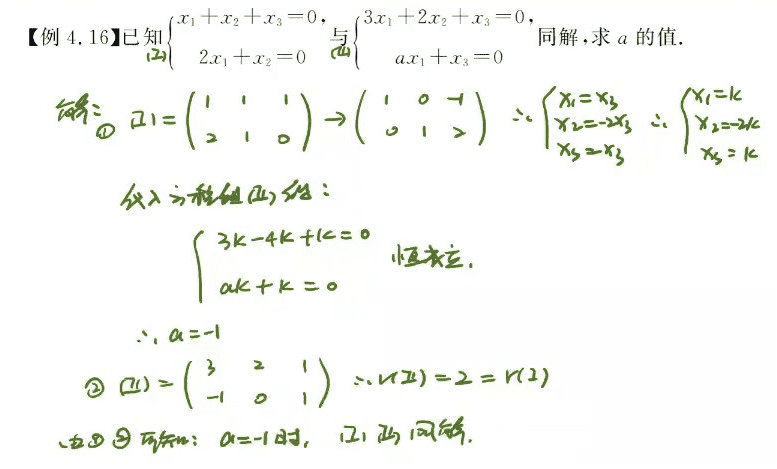 【例 4.16】已知(I){x₁+x₂+x₃=0, 2x₁+x₂=0 与(II){3x₁+2x₂+x₃=0, ax₁+x₃=0 同解,求 a 的值.
解:① (I)=(1 1 1; 2 1 0)→(1 0 -1; 0 1 2) ∴{x₁=x₃ x₂=-2x₃ x₃=x₃ ∴{x₁=k x₂=-2k x₃=k
代入方程组(II)得:
{3k-4k+k=0 ak+k=0 恒成立.
∴ a=-1
② (II)=(3 2 1; -1 0 1) ∴r(II)=2=r(I)
由①②可知: a=-1时, (I) (II)同解.